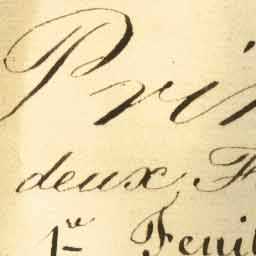 Prin
deux F
1re Feuil